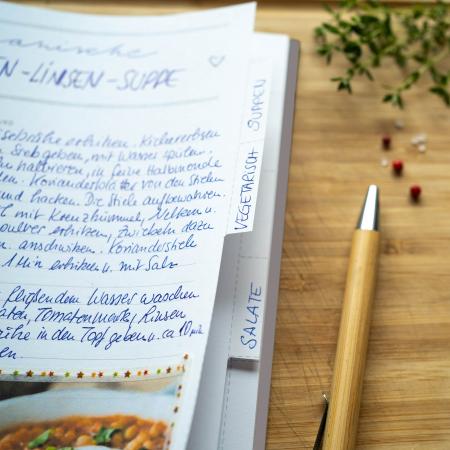 anische
EN-LINSEN-SUPPE
sebrühe erhitzen. Kichererbsen
Sieb geben, mit Wasser spülen.
halbieren, in feine Halbmonde
den. Korianderblätter von den Stielen
und hacken. Die Stiele aufbewahren.
Öl mit Kreuzkümmel, Nelken u.
pulver erhitzen, Zwiebeln dazu
n. anschwitzen. Korianderstiele
1 Min erhitzen u. mit Salz
fließendem Wasser waschen
aten, Tomatenmark, Linsen
rühe in den Topf geben u. ca 10 min
en.
SUPPEN
VEGETARISCH
SALATE